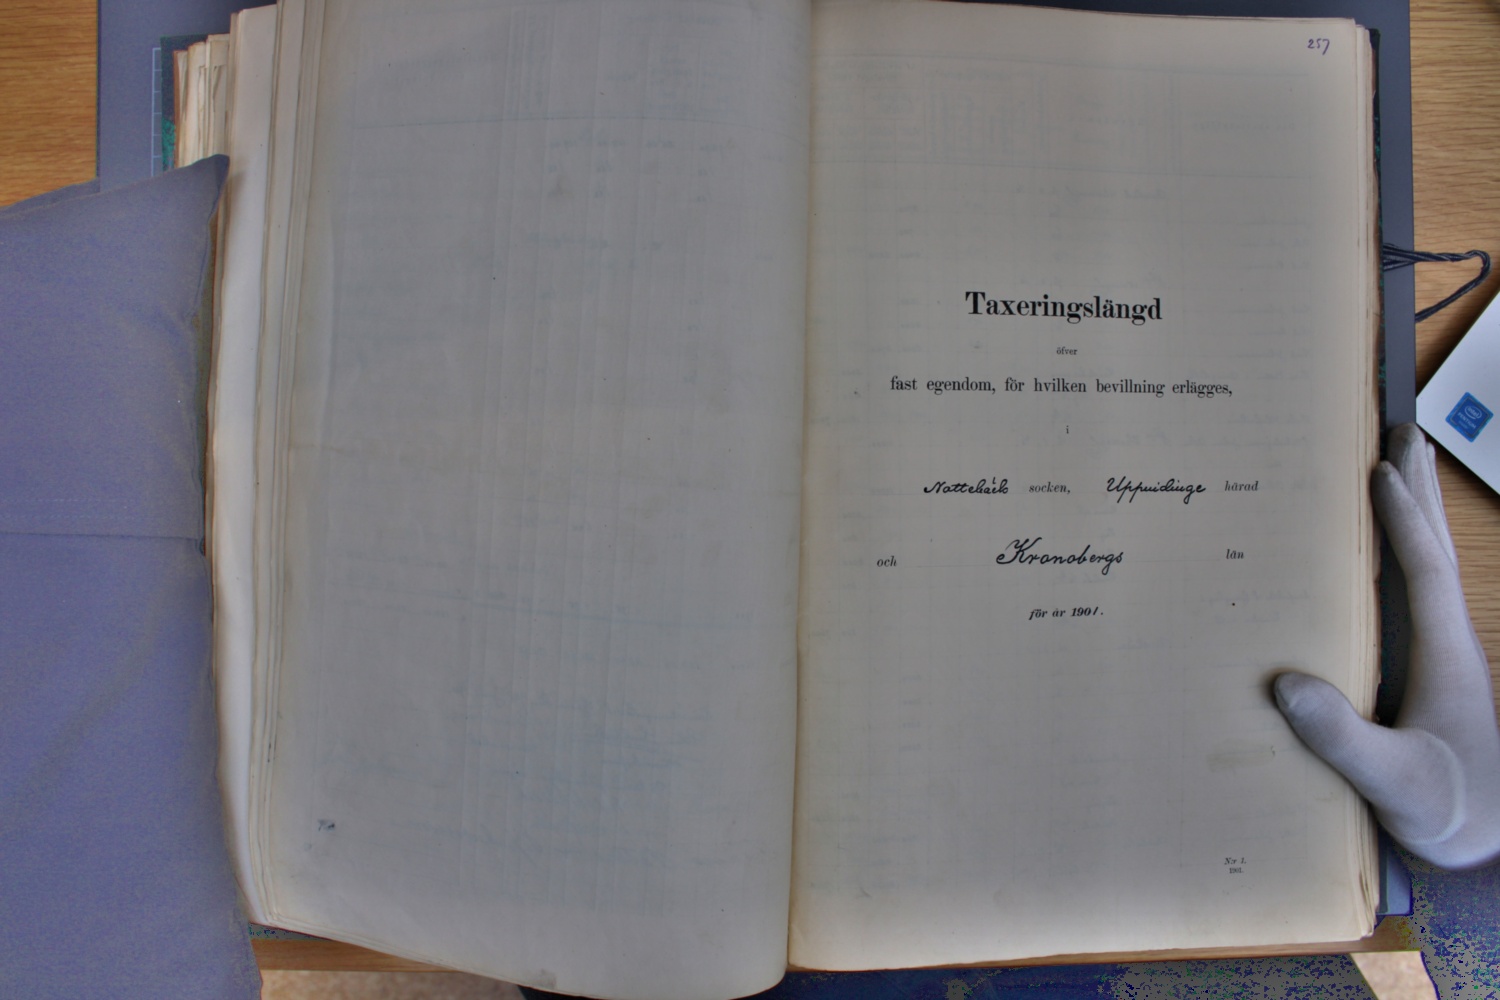 257
Taxeringslängd
öfver
fast egendom, för hvilken bevillning erlägges,
i
Nottebäcks socken, Uppvidinge härad
och Kronobergs län
för år 1901.
N:r 1.